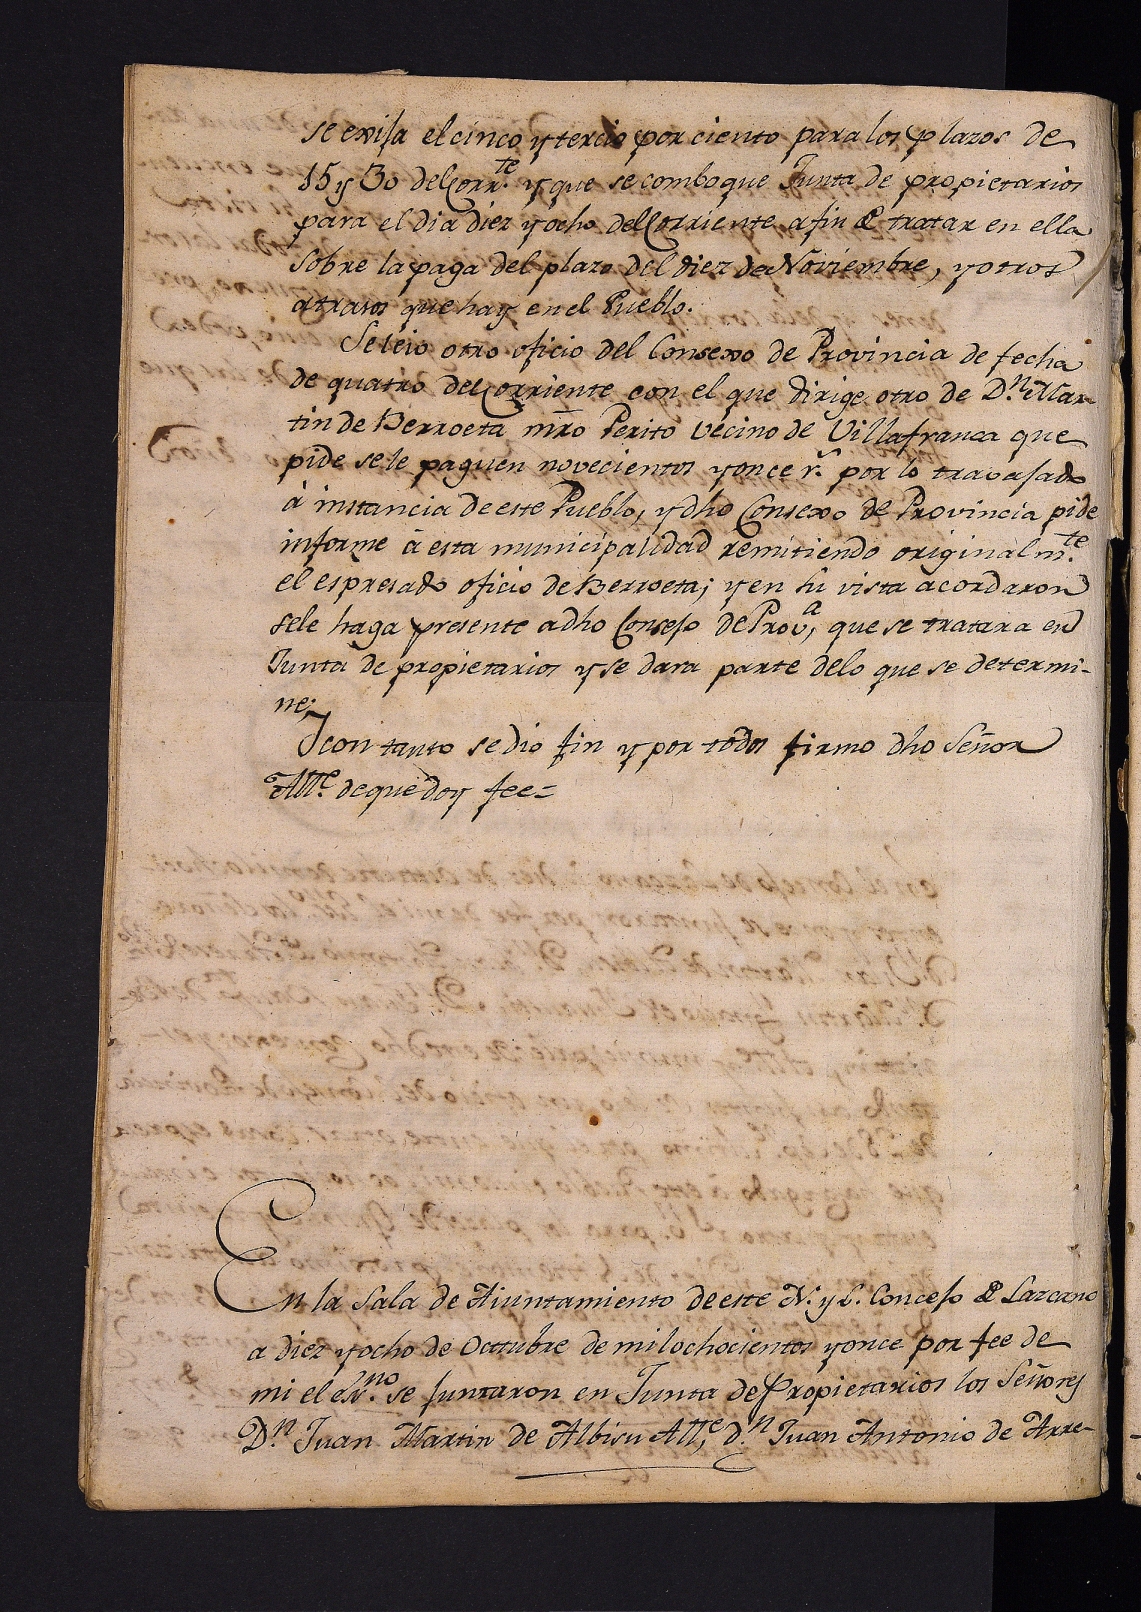 se exija el cinco y tercio por ciento para los plazos de
15 y 30 del Corr.te y que se comboque Junta de propietarios
para el dia diez y ocho del Corriente, a fin de tratar en ella
sobre la paga del plazo del diez de Noviembre, y otros
atrasos que hay en el Pueblo.
Se leio otro oficio del Consexo de Provincia de fecha
de quatro del Corriente con el que dirige otro de D.n Mar-
tin de Berroeta mro Perito vecino de Villafranca que
pide se le paguen novecientos y once r.s por lo travajado
à instancia de este Pueblo, y dho Consexo de Provincia pide
informe à esta municipalidad remitiendo originalm.te
el espresado oficio de Berroeta; y en su vista acordaron
sele haga presente a dho Consejo de Prov.a, que se tratara en
Junta de propietarios y se dara parte delo que se determi-
ne;
I con tanto se dio fin y por todos firmo dho Señor
All.e de que doy fee=
En la Sala de Aiuntamiento de este N. y L. Concejo de Lazcano
a diez y ocho de Octubre de mil ochocientos y once por fee de
mi el ess.no se juntaron en Junta de Propietarios los Señores
D.n Juan Martin de Albisu All.e, d.n Juan Antonio de Arre-